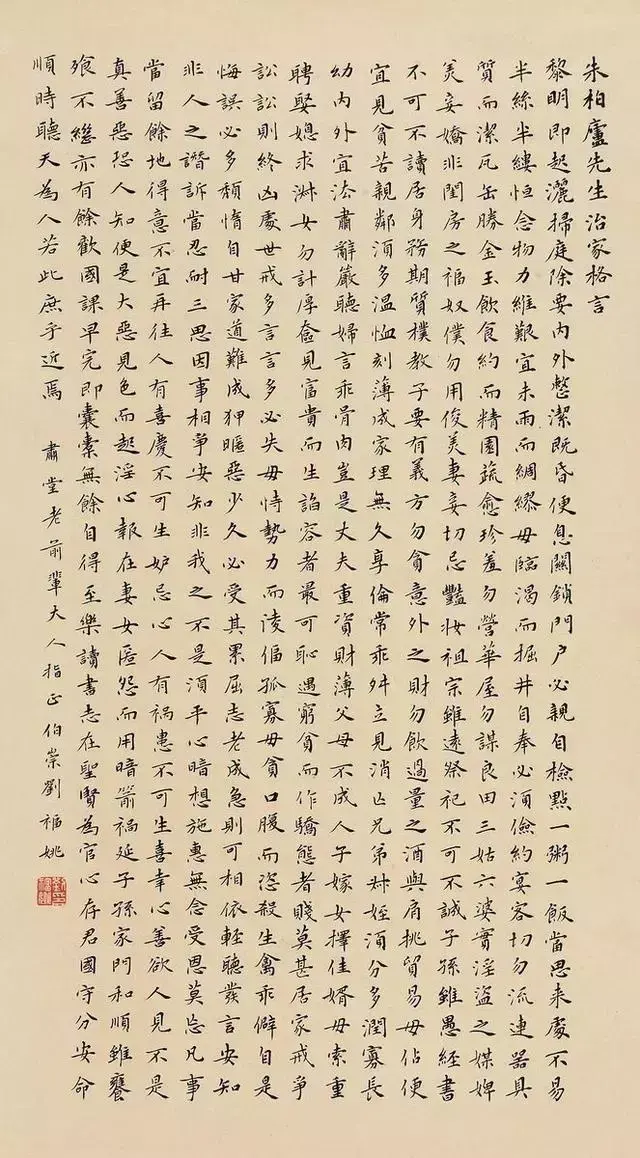 朱柏廬先生治家格言
黎明即起灑掃庭除要內外整潔既昏便息關鎖門戶必親自檢點一粥一飯當思來處不易
半絲半縷恒念物力維艱宜未雨而綢繆毋臨渴而掘井自奉必須儉約宴客切勿流連器具
質而潔瓦缶勝金玉飲食約而精園蔬愈珍羞勿營華屋勿謀良田三姑六婆實淫盜之媒婢
美妾嬌非閨房之福奴僕勿用俊美妻妾切忌豔妝祖宗雖遠祭祀不可不誠子孫雖愚經書
不可不讀居身務期質樸教子要有義方勿貪意外之財勿飲過量之酒與肩挑貿易毋佔便
宜見貧苦親鄰須多溫恤刻薄成家理無久享倫常乖舛立見消亡兄弟叔姪須分多潤寡長
幼內外宜法肅辭嚴聽婦言乖骨肉豈是丈夫重資財薄父母不成人子嫁女擇佳婿毋索重
聘娶媳求淑女勿計厚奩見富貴而生諂容者最可恥遇窮貧而作驕態者賤莫甚居家戒爭
訟訟則終凶處世戒多言言多必失毋恃勢力而凌偪孤寡毋貪口腹而恣殺生禽乖僻自是
悔誤必多頹惰自甘家道難成狎暱惡少久必受其累屈志老成急則可相依輕聽發言安知
非人之譖訴當忍耐三思因事相爭安知非我之不是須平心暗想施惠無念受恩莫忘凡事
當留餘地得意不宜再往人有喜慶不可生妒忌心人有禍患不可生喜幸心善欲人見不是
真善惡恐人知便是大惡見色而起淫心報在妻女匿怨而用暗箭禍延子孫家門和順雖饔
飱不繼亦有餘歡國課早完即囊橐無餘自得至樂讀書志在聖賢為官心存君國守分安命
順時聽天為人若此庶乎近焉 肅堂老前輩大人指正 伯崇劉福姚